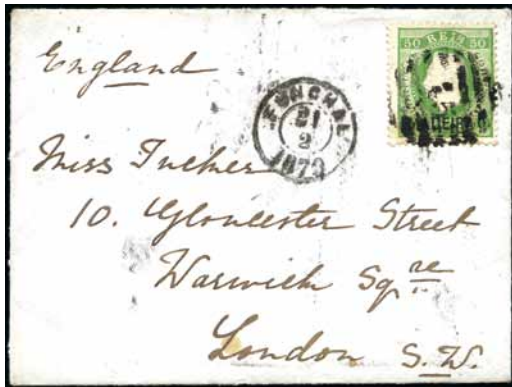 50 REIS 50
England
FUNCHAL
21
2
1879
Miss Tucker
10. Gloucester Street
Warwick Sq re
London S.W.